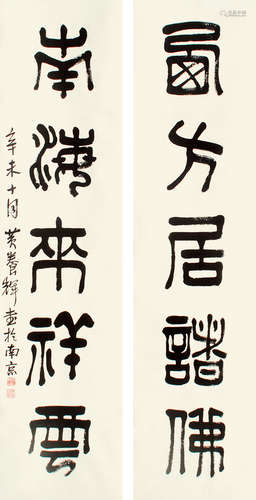 西方居諸佛
南海來祥雲
辛未十月黃養輝書於南京